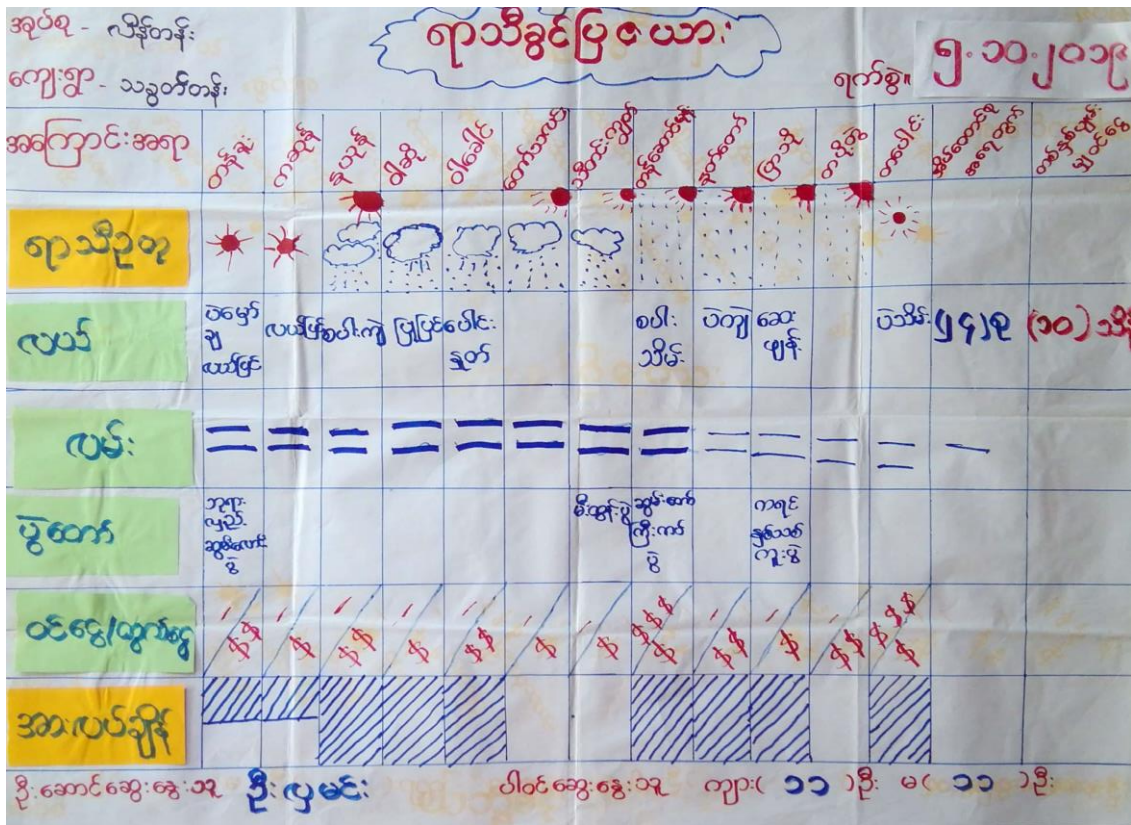 အုပ်စု - လိန်တန်း
ရာသီခွင်ပြဇယား
ကျေးရွာ - သခွတ်တန်း
ရက်စွဲ။ ၅.၁၀.၂၀၁၉
အကြောင်းအရာ တန်ခူး ကဆုန် နယုန် ဝါဆို ဝါခေါင် တော်သလင်း သီတင်းကျွတ် တန်ဆောင်မုန်း နတ်တော် ပြာသို တပို့တွဲ တပေါင်း အိမ်ထောင်စု အရေတွက် တစ်နှစ်ပျမ်းမျှဝင်ငွေ
ရာသီဥတု
လယ် ပဲမှော်ချ လယ်ပြင် လယ်ပြင် စပါးကျဲ ပြုပြင် ပေါင်းနှုတ် စပါးသိမ်း ပဲကျဲ ဆေးဖျန်း ပဲသိမ်း (၁၀) သိန်း
လမ်း
ပွဲတော် ဘုရားလှည့် ဆွမ်းလောင်းပွဲ မီးထွန်းပွဲ ဆွမ်းတော်ကြီးကပ်ပွဲ ကရင်နှစ်သစ်ကူးပွဲ
ဝင်ငွေ/ထွက်ငွေ
အားလပ်ချိန်
ဦးဆောင်ဆွေးနွေးသူ ဦးလှမင်း ပါဝင်ဆွေးနွေးသူ ကျား( ၁၁ )ဦး မ( ၁၁ )ဦး